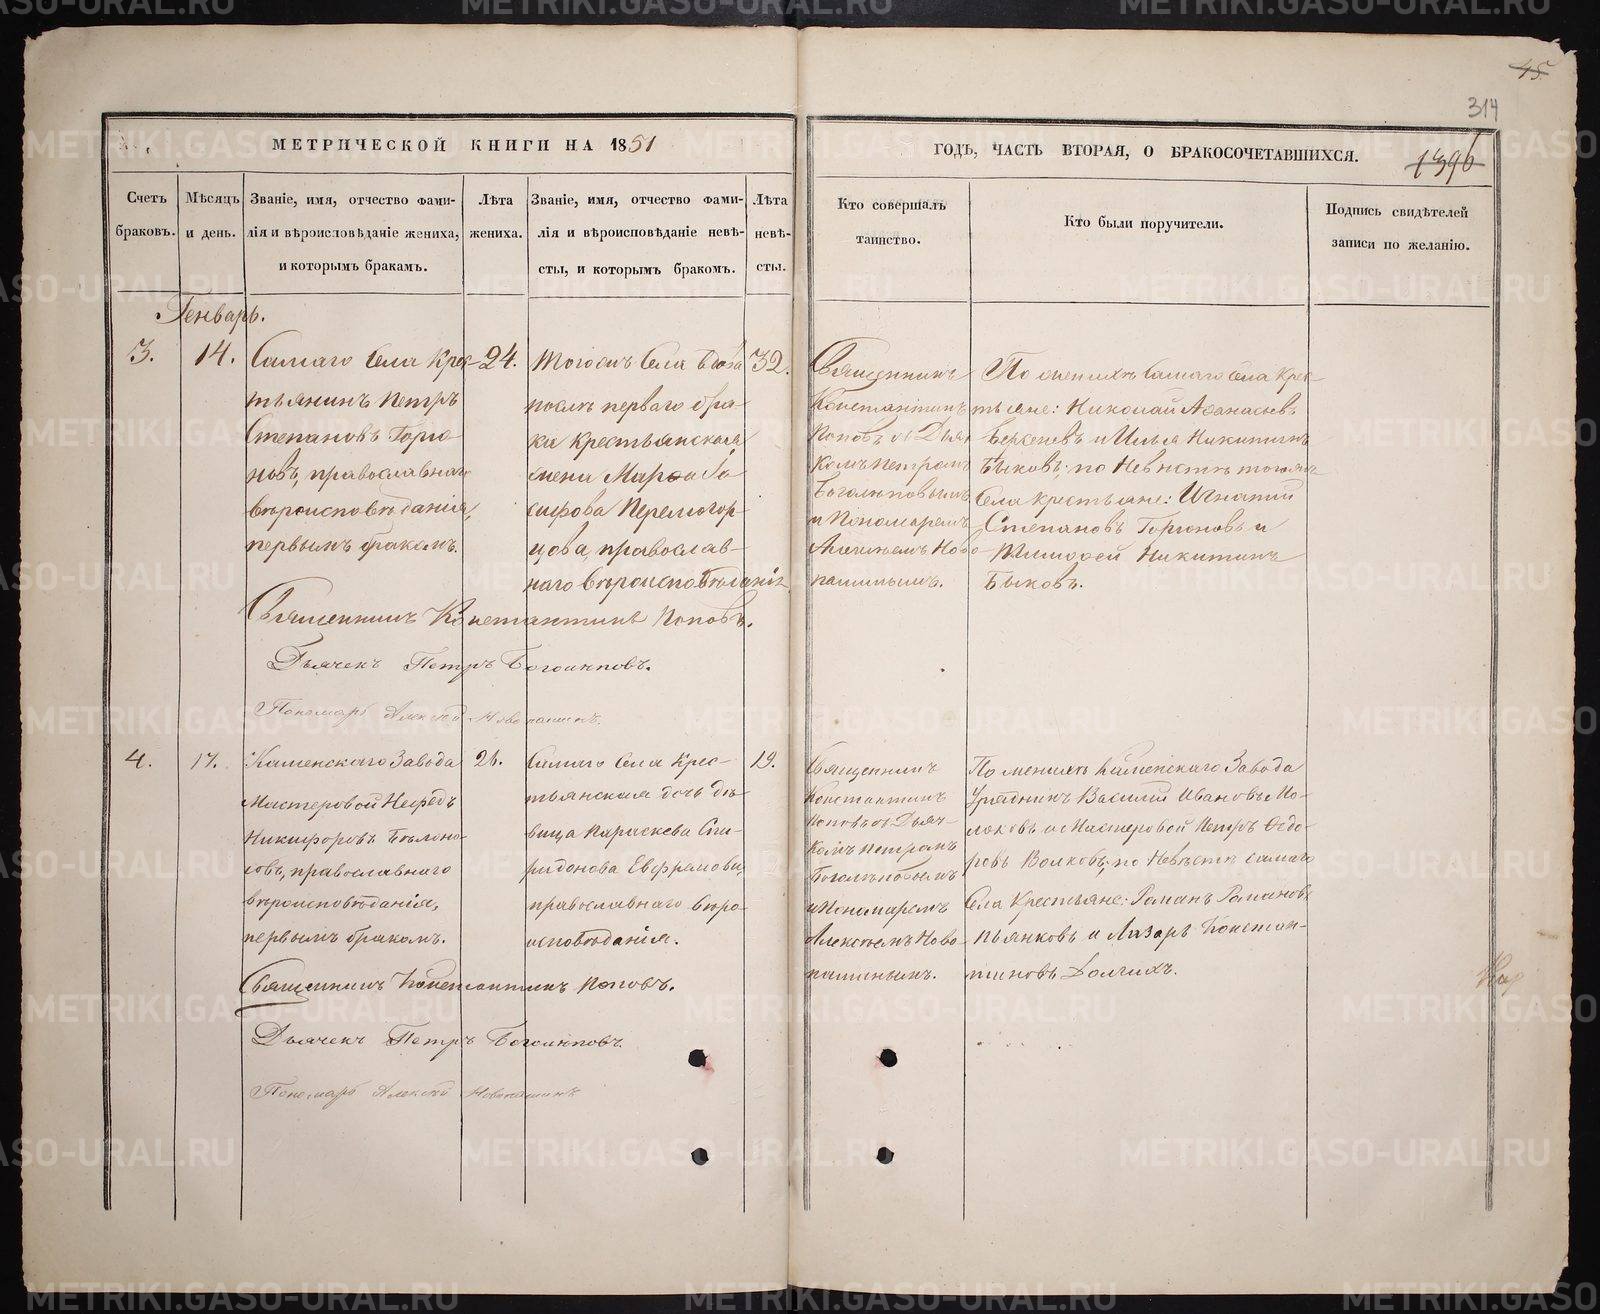 45
314
МЕТРИЧЕСКОЙ КНИГИ НА 1851
ГОДЪ, ЧАСТЬ ВТОРАЯ, О БРАКОСОЧЕТАВШИХСЯ.
1396
Счетъ
браковъ.
Мѣсяцъ
и день.
Званіе, имя, отчество фами-
лія и вѣроисповѣданіе жениха,
и которымъ бракамъ.
Лѣта
жениха.
Званіе, имя, отчество фами-
лія и вѣроисповѣданіе невѣ-
сты, и которымъ бракомъ.
Лѣта
невѣ-
сты.
Кто совершалъ
таинство.
Кто были поручители.
Подпись свидѣтелей
записи по желанію.
Генварь.
3.
14.
Самаго Села Крес-
тьянинъ Петръ
Степановъ Горю
новъ, православнаго
вѣроисповѣданія,
первымъ бракомъ.
24.
Тогожъ Села вдова
послѣ перваго бра-
ка крестьянская
жена Марѳа Іо
сифова Перемогор
цова, православ-
наго вѣроисповѣданія
32.
Священникъ
Константинъ
Поповъ съ Дьяч
комъ Петромъ
Боголѣповымъ
и Пономаремъ
Алексѣемъ Ново
пашинымъ.
По женихѣ Самаго Села Крес
тьяне: Николай Аѳанасьевъ
Берсеневъ и Илья Никитинъ
Быковъ; по Невѣстѣ тогожъ
Села крестьяне: Игнатій
Степановъ Горюновъ и
Тимоѳей Никитинъ
Быковъ.
Священникъ Константинъ Поповъ.
Дьячекъ Петръ Боголѣповъ.
Пономарь Алексѣй Новопашинъ.
4.
17.
Каменскаго Завода
Мастеровой Нефедъ
Никифоровъ Бѣлоно
совъ, православнаго
вѣроисповѣданія,
первымъ бракомъ.
21.
Самаго Села Крес-
тьянская дочь дѣ
вица Параскева Спи-
ридонова Евфремова,
православнаго вѣро
исповѣданія.
19.
Священникъ
Константинъ
Поповъ съ Дьяч-
комъ Петромъ
Боголѣповымъ
и Пономаремъ
Алексѣемъ Ново-
пашинымъ.
По женихѣ Каменскаго Завода
Урядникъ Василій Ивановъ
и Мастеровой Петръ Ѳедо-
ровъ Волковъ; по Невѣстѣ самаго
Села Крестьяне: Романъ Романовъ
Пьянковъ и Лазарь Констан-
тиновъ Долгихъ.
Священникъ Константинъ Поповъ.
Дьячекъ Петръ Боголѣповъ.
Пономарь Алексѣй Новопашинъ
METRIKI.GASO-URAL.RU